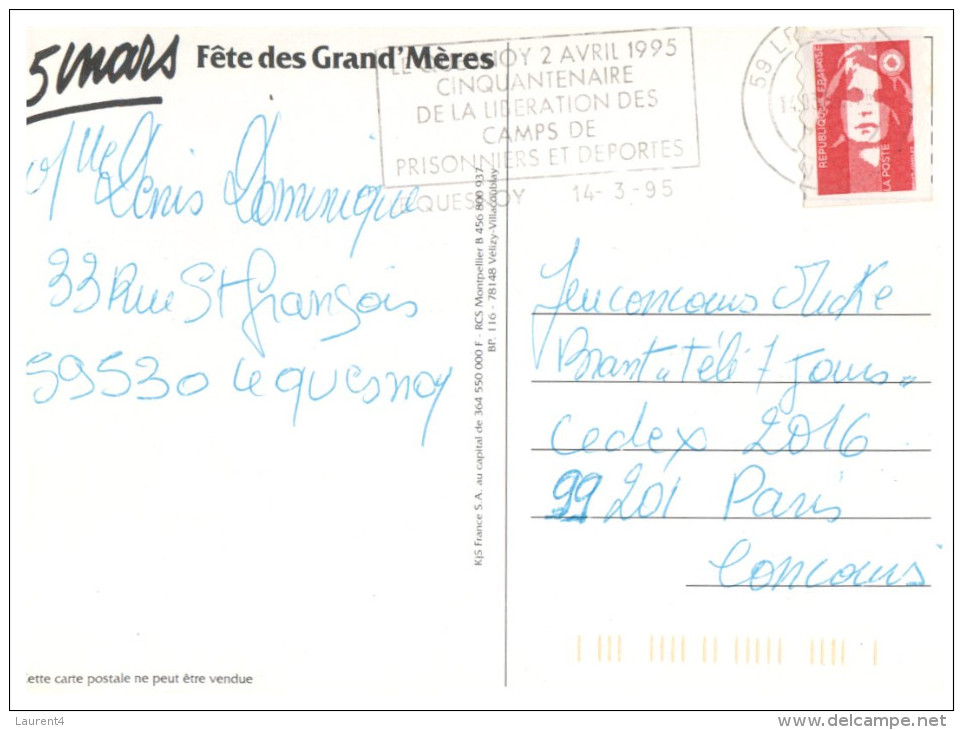 5 mars Fête des Grand'Mères
LE QUESNOY 2 AVRIL 1995
CINQUANTENAIRE
DE LA LIBERATION DES
CAMPS DE
PRISONNIERS ET DEPORTES
LE QUESNOY 14-3-95
59 L
REPUBLIQUE FRANÇAISE
LA POSTE
Mlle Denis Dominique
33 Rue St François
59530 Le quesnoy
KJS France S.A. au capital de 364 550 000 F - RCS Montpellier B 456 800 937
BP. 116 - 78148 Vélizy-Villacoublay
Jeu concours Micke
Brant "Télé 7 Jours"
Cedex 2016
99201 Paris
Concours
ette carte postale ne peut être vendue
Laurent4
www.delcampe.net